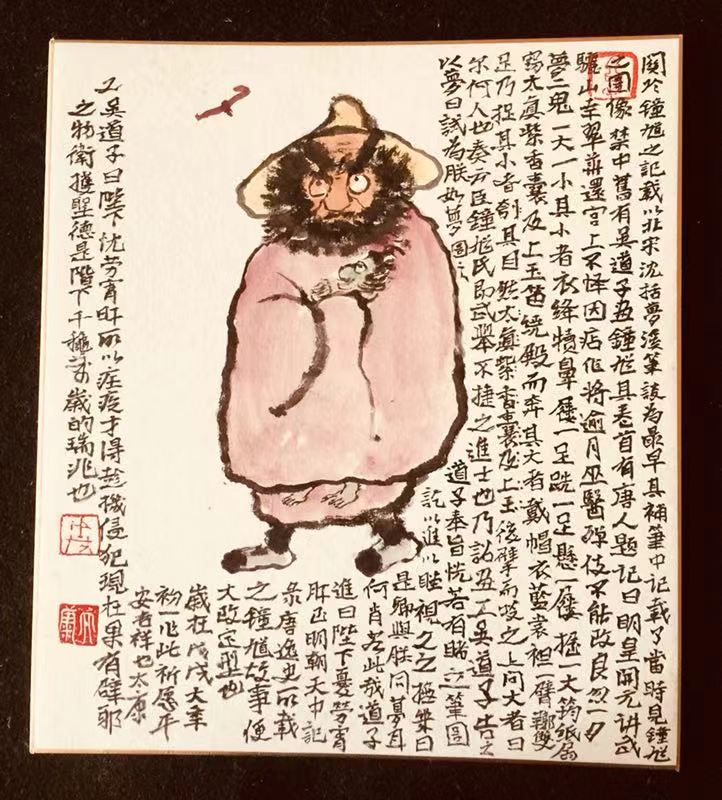 關於鐘馗之記載以北宋沈括夢溪筆談為最早具補筆中記載了當時見鐘馗
之圖像禁中舊有吳道子畫鐘馗其卷首有唐人題記曰明皇開元講武
驪山幸翠華還宮上不怿因痁作將逾月巫醫殫伎不能改良忽一夕
夢二鬼一大一小其小者衣絳犢鼻屨一足跣一足懸一屨搢一大筠紙扇
竊太真紫香囊及上玉笛繞殿而奔其大者戴帽衣藍裳袒一臂鞹雙
足乃捉其小者刳其目然太真紫香囊及上玉後擘而啖之上問大者曰
尔何人也奏云臣鐘馗氏即武舉不捷之進士也乃詔畫工吳道子告之
以夢曰試為朕如夢圖之
道子奉旨恍若有睹立筆圖
訖以進以瞠視久之撫案曰
是卿與朕同夢耳
何肖若此哉道子
進曰陛下憂勞宵
旰已明朝天中記
彔唐逸史所載
之鐘馗故事便
大致定型也
歲在戊戌大年
初一作此祈愿平
安吉祥也太康
工吳道子曰陛下沈劳宵旰所以疫才得趁機侵犯現在果有辟邪
之物衛護聖德是陛下千龝萬歲的瑞兆也